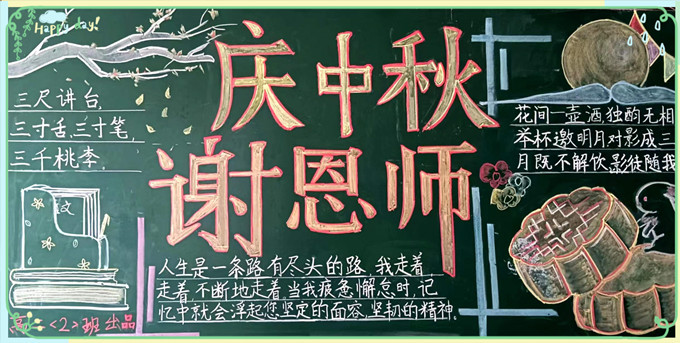 Happy day!
庆中秋
谢恩师
三尺讲台,
三寸舌,三寸笔,
三千桃李.
花间一壶酒独酌无相
举杯邀明月对影成三
月既不解饮影徒随我
文
人生是一条路有尽头的路,我走着,
走着不断地走着当我疲惫懈怠时,记
忆中就会浮起您坚定的面容,坚韧的精神.
高二<2>班出品